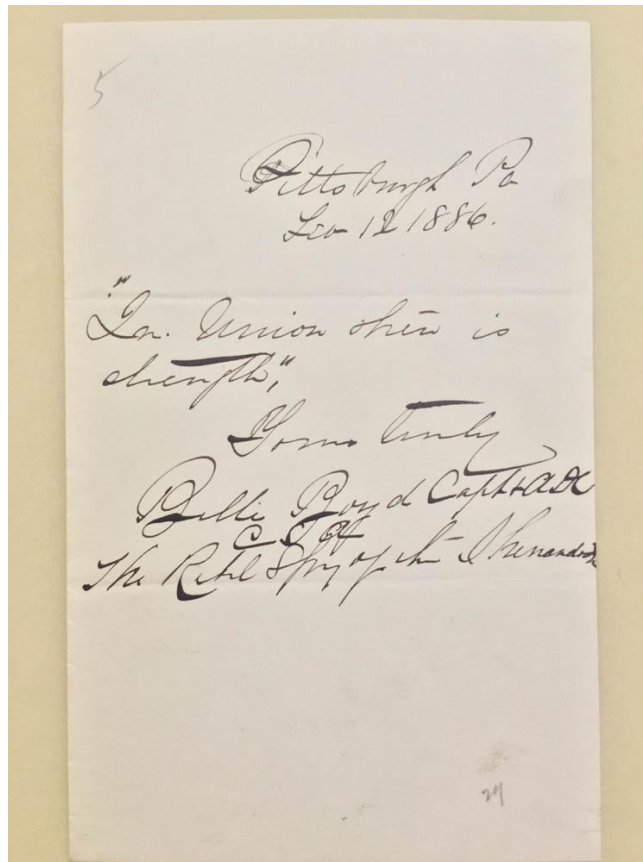 5
Pittsburgh Pa
Dec 12 1886.
"In. Union there is
strength,"
Yours truly
Belle Boyd Capt & ADC
C S A
The Rebel Spy of the Shenandoah
24